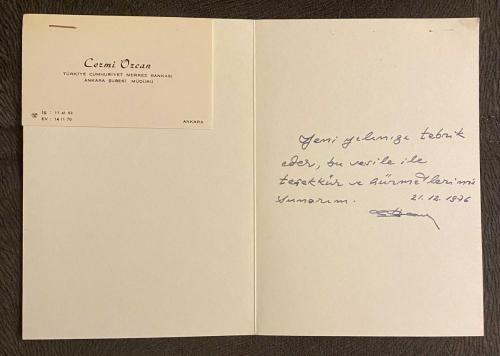 Cezmi Özcan
TÜRKİYE CUMHURİYET MERKEZ BANKASI
ANKARA ŞUBESİ MÜDÜRÜ
İŞ : 11 41 52
EV : 14 11 70
ANKARA
Yeni yılınızı tebrik
eder, bu vesile ile
teşekkür ve hürmetlerimi
sunarım.
21.12.1976